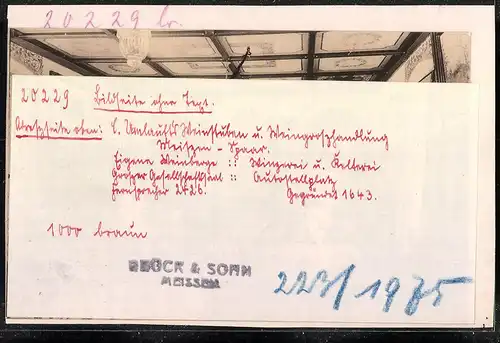 20229 br.
20229 Bildseite ohne Text.
Adreßseite oben: C. Umlauft's Weinstuben u. Weingroßhandlung
Meißen - Spaar.
Eigene Weinberge :: Winzerei u. Kelterei
Großer Gesellschaftssaal :: Autostellplatz
Fernsprecher 2426. Gegründet 1643.
1000 braun
BRÜCK & SOHN
MEISSEN
223/1975